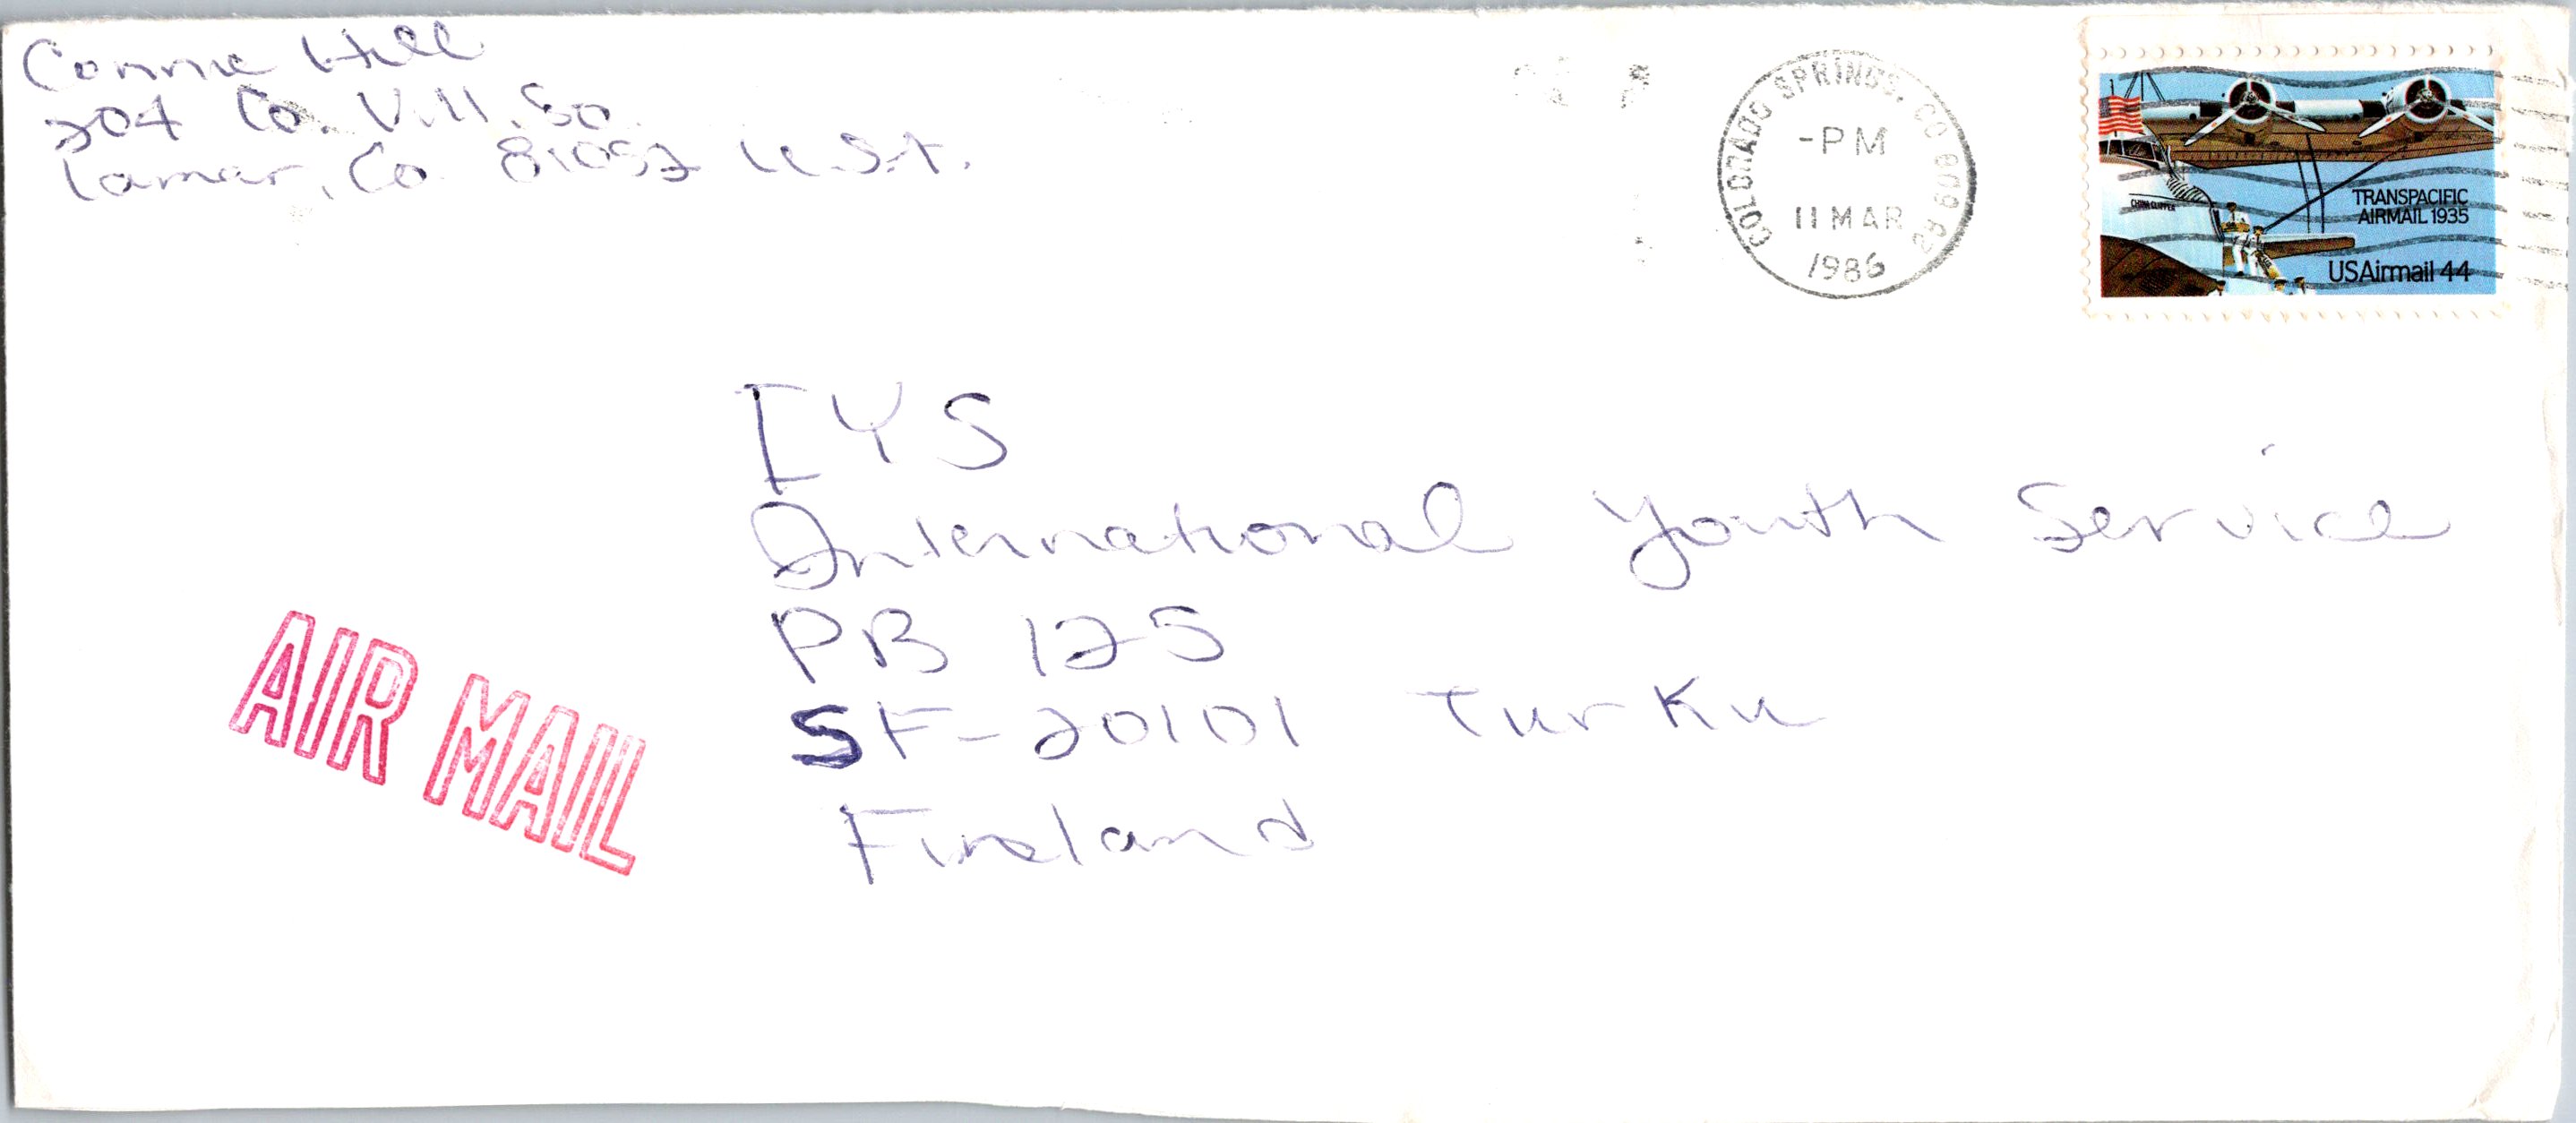 Connie Hill
204 Co. Vill. So.
Lamar, Co. 81052 U.S.A.
COLORADO SPRINGS, CO 809
-PM
11 MAR
1986
CHINA CLIPPER
TRANSPACIFIC
AIRMAIL 1935
USAirmail 44
IYS
International Youth Service
PB 125
SF-20101 Turku
Fineland
AIR MAIL